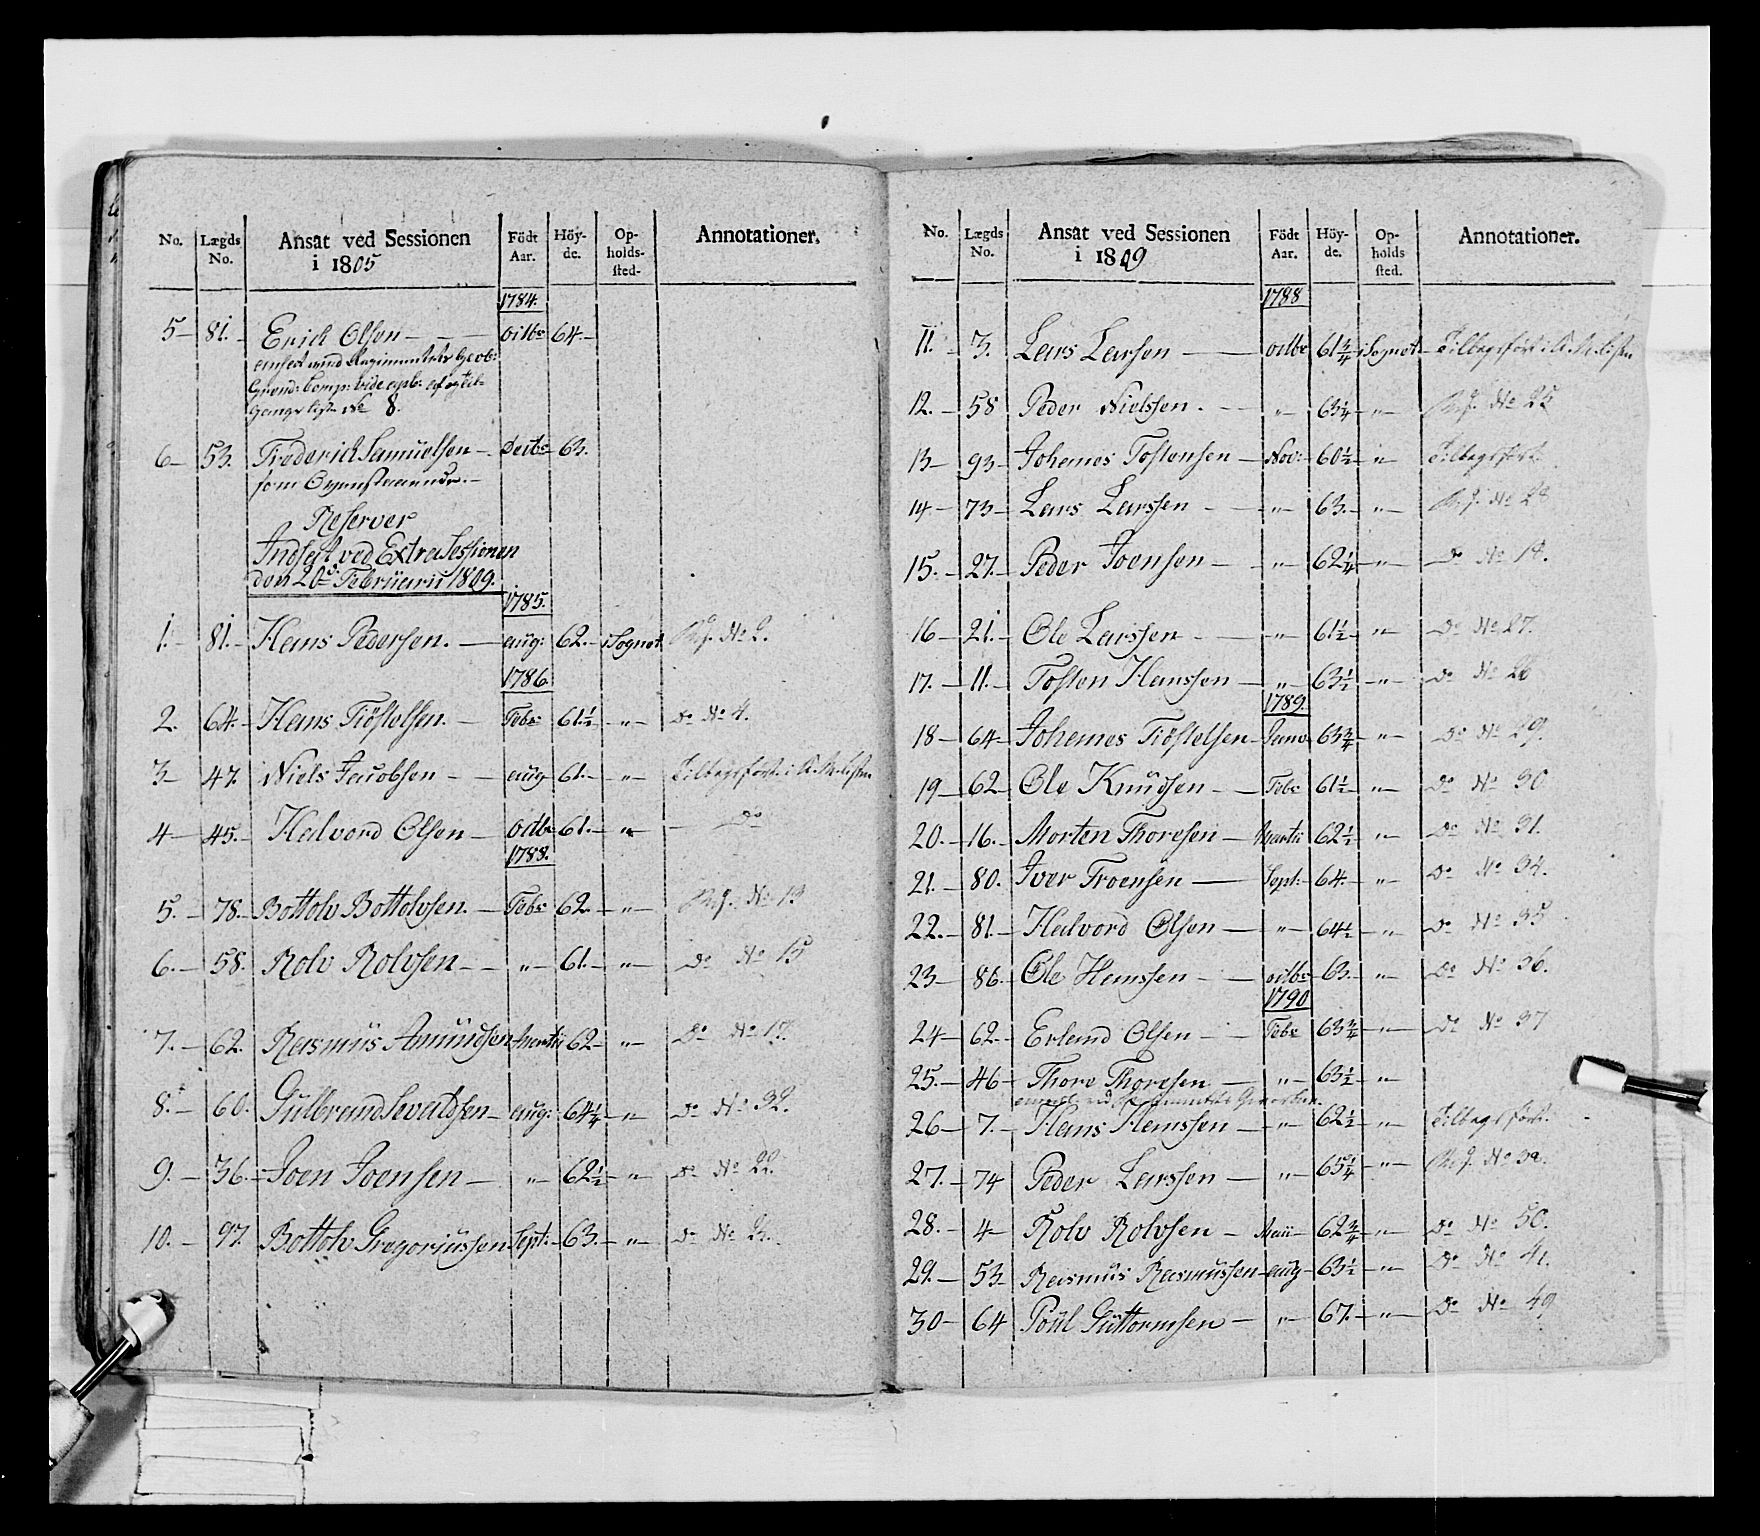 No. Lægds No. Ansat ved Sessionen i 1805 Födt Aar. Höyde. Opholdssted. Annotationer.
1784.
5 — 81. — Erich Olsen — — octbr 64 —
ansat ved Regimentets
Gren: Comp:
No 8.
6 — 53. Frederich Samuelsen — Decbr 63.
som
Reserver
Indsat ved Extra Sessionen
den 20de Februarii 1809.
1785.
1. — 81. — Hans Pedersen. — aug: 62. — i Sognet No 2.
1786.
2. 64. — Hans Tiöstelsen. — Febr 61½ — " — Do No 4.
3 — 47. Niels Jacobsen — — aug 61. — " —
4 — 45. — Halvord Olsen — octbr 61. — " — — Do
1788.
5. — 78. — Bottolv Bottolvsen. — Febr 62. — " — No 13
6. — 58. Rolv Rolvsen — — " — 61. — " — Do No 15
7. — 62. Rasmus Amundsen Martii 62 — " — Do No 17.
8. — 60. Gulbrand Sevaldsen — aug: 64¼ — " — Do No 32.
9. — 36. — Joen Joensen — " — 62½ — " — Do No 22.
10. — 97. Bottolv Gregoriussen Sept: — 63. — " — Do No 23.
No. Lægds No. Ansat ved Sessionen i 1809 Födt Aar. Höyde. Opholdssted. Annotationer.
1788
11. — 3. Lars Larsen — — octbr 61¾ i Sognet — Tilbagefört i
12. — 58 Peder Nielssen. — — " — 63¼ — " — No 25
13 — 93 — Johannes Tostensen — Nov: 60½ — " Tilbagefört
14 — 73 — Lars Larssen — — " — 63. — " — No 28
15. — 27. — Peder Joensen — — " — 62¼ — " — Do No 14.
16 — 21. — Ole Larssen — — " — 61½ — " — Do No 27.
17. — 11. — Tosten Hanssen — " — 63½ — " — Do No 26
1789.
18 — 64 — Johannes Tiöstelsen — Janv 63¾ — " — Do No 29.
19 — 62 — Ole Knudsen — — Febr 61½ — " — Do No 30
20. — 16. — Morten Thoresen — Martii 62½ — " — Do No 31.
21. — 80. Iver Troensen — Sept: — 64. — " — Do No 34.
22. — 81. — Halvord Olsen — " — 64½ — " — Do No 35
23 — 86. — Ole Hanssen — — octbr 63. — " — Do No 36.
1790
24 — 62. — Erland Olsen — — Febr 63¾ — " — Do No 37
25. — 46 — Thore Thoresen — " — 63½ — " —
26 — 7. — Hans Hanssen — " — 62½ — " — Tilbagefört.
27. — 74 Peder Larssen — " — 65¼ — " — No 39.
28. — 4 — Rolv Rolvsen — Maii — 62¾ — " — Do No 50.
29. — 53 — Rasmus Rasmussen — aug — 63½ — " — Do No 41.
30 — 64 Poul Guttormsen — " — 67. — " — Do No 49